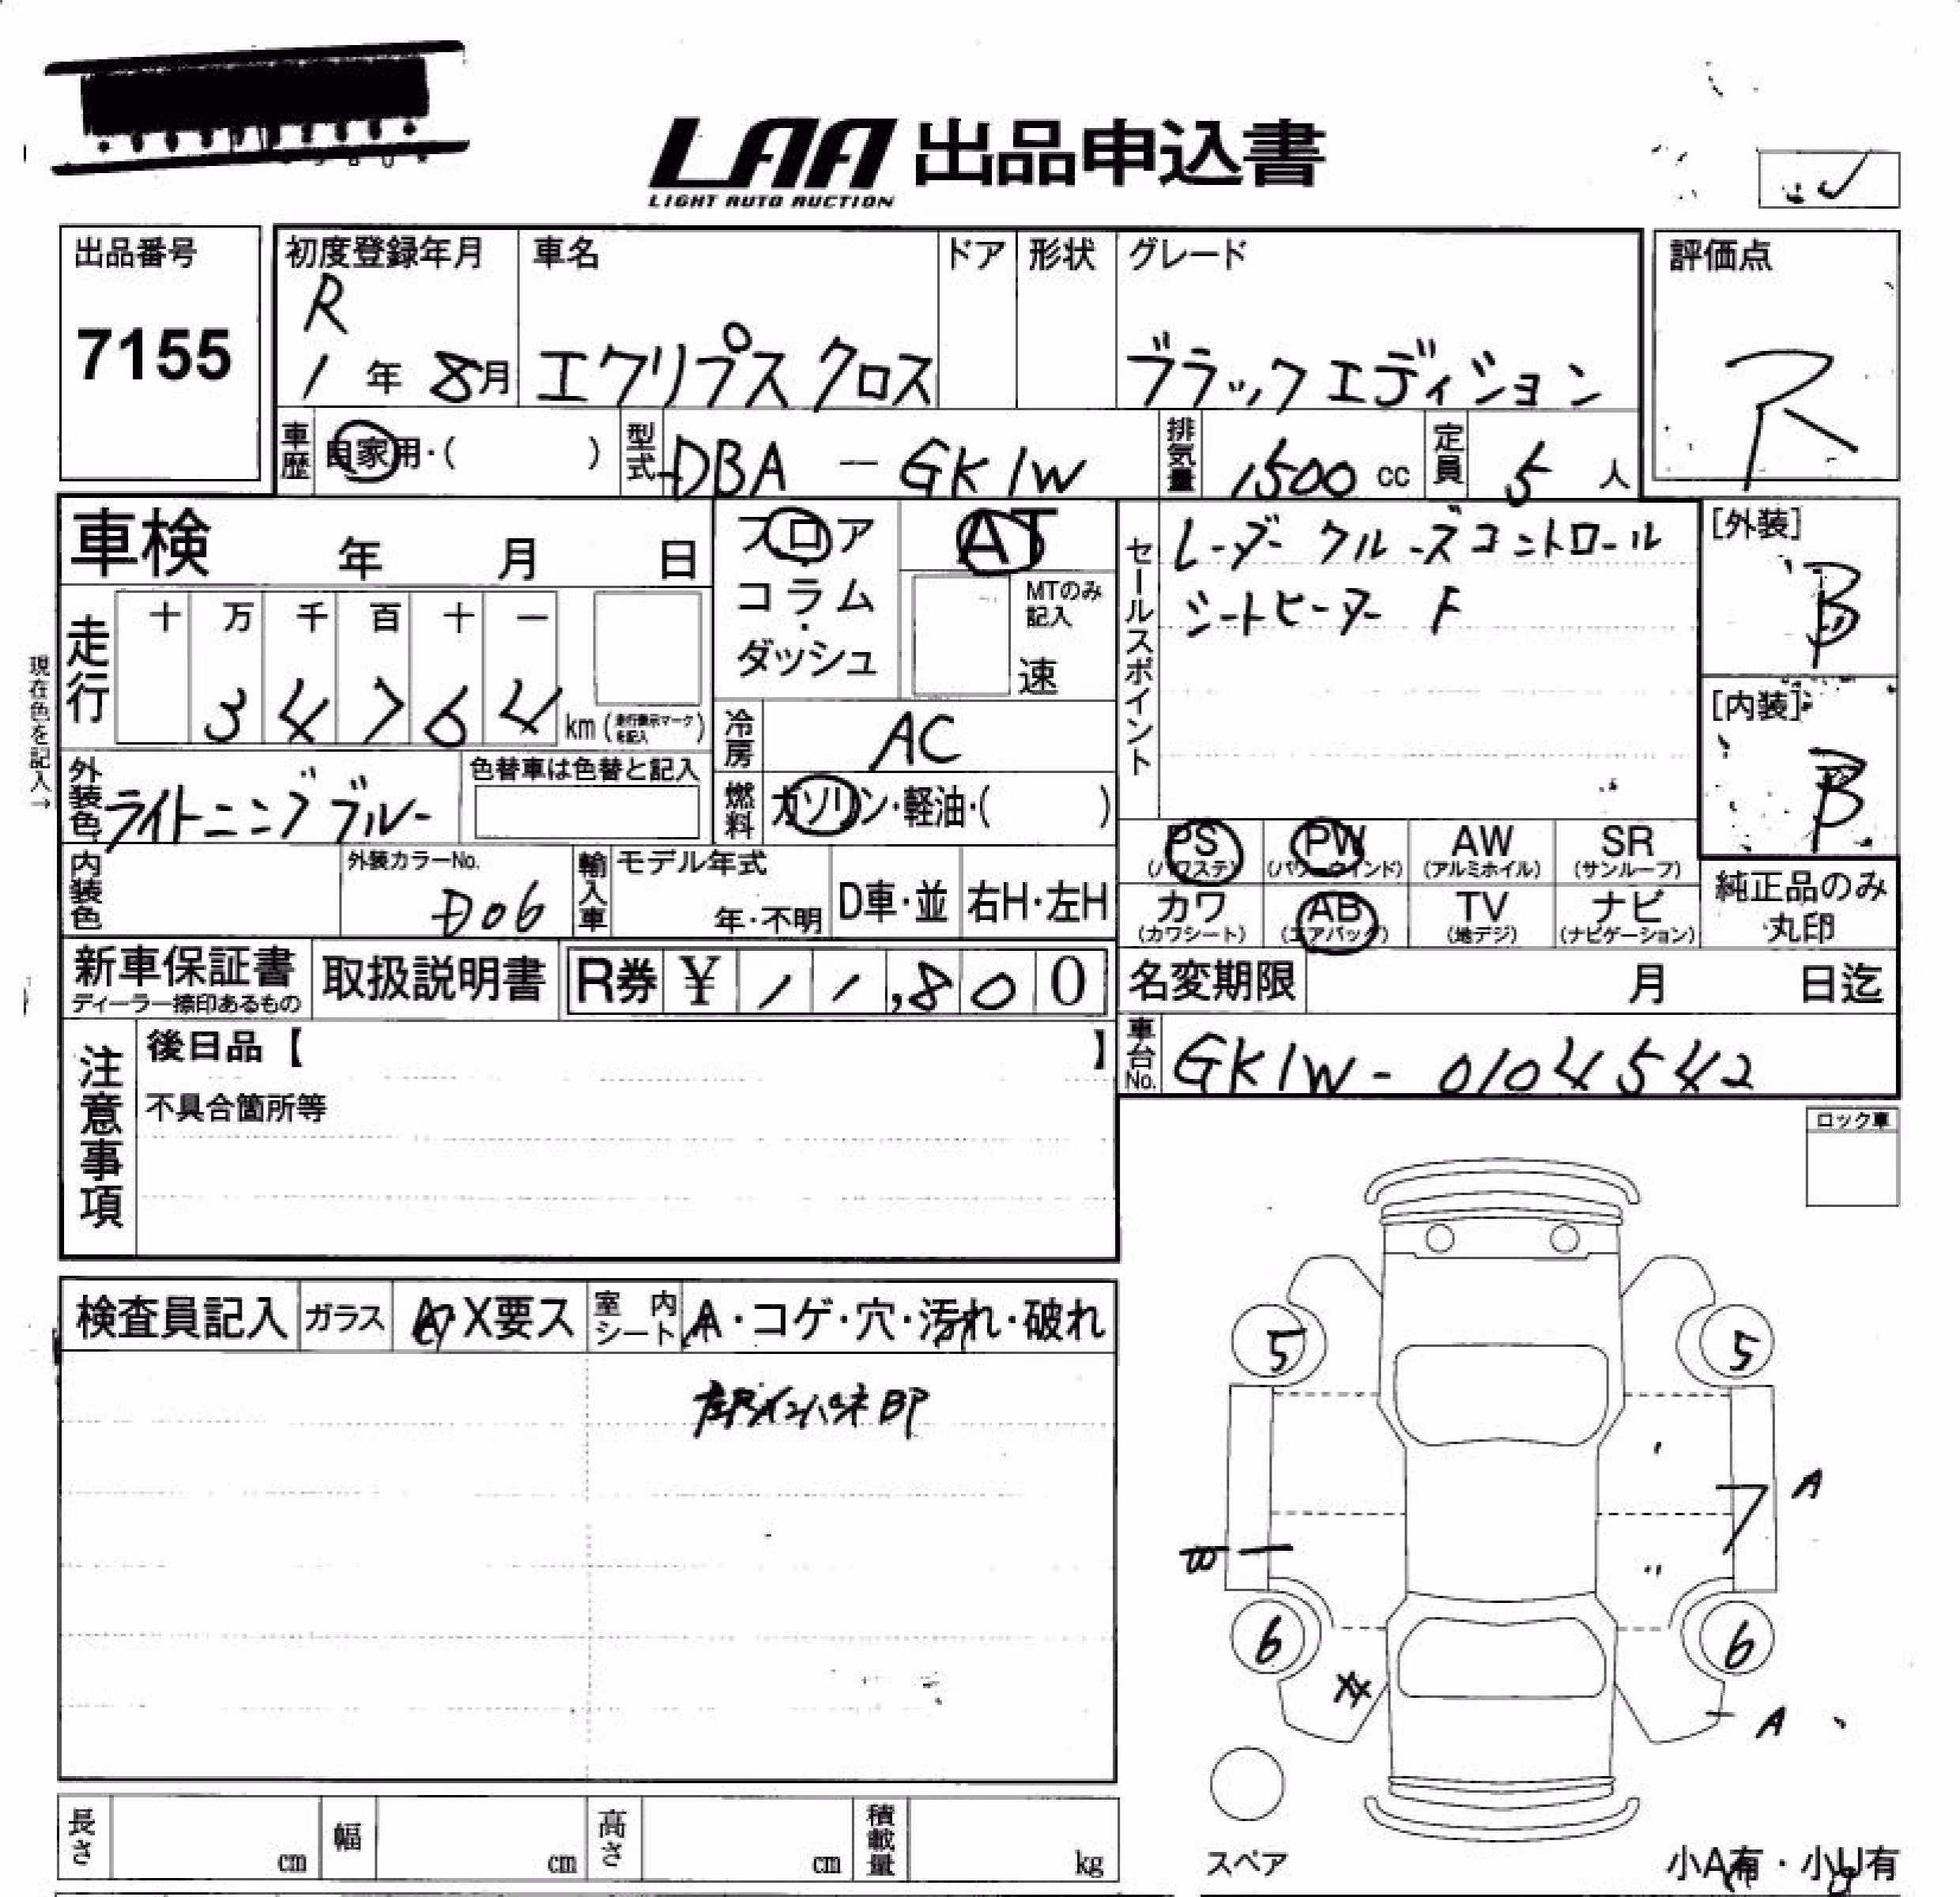 LAA 出品申込書
LIGHT AUTO AUCTION
出品番号
7155
初度登録年月
R
1年 8月
車名
エクリプス クロス
ドア
形状
グレード
ブラックエディション
評価点
R
車歴
自家用・( )
型式
DBA - GK1W
排気量
1500 cc
定員
5 人
車検 年 月 日
フロア
コラム
・
ダッシュ
AT
MTのみ
記入
速
セールスポイント
レーダークルーズコントロール
シートヒーター F
[外装]
B
[内装]
B
現在色を記入→
走行
十 万 千 百 十 一
3 4 7 6 4 km (走行表示マークを記入)
冷房
AC
外装色
ライトニングブルー
色替車は色替と記入
燃料
ガソリン・軽油・( )
PS
(パワステ)
PW
(パワーウインド)
AW
(アルミホイル)
SR
(サンルーフ)
内装色
外装カラーNo.
D06
輸入車
モデル年式
年・不明
D車・並
右H・左H
カワ
(カワシート)
AB
(エアバッグ)
TV
(地デジ)
ナビ
(ナビゲーション)
純正品のみ
丸印
新車保証書
ディーラー捺印あるもの
取扱説明書
R券 ¥ 1 1,8 0 0
名変期限 月 日迄
車台No.
GK1W - 0104542
注意事項
後日品【 】
不具合箇所等
ロック車
検査員記入
ガラス
A X要ス
室内シート
A・コゲ・穴・汚れ・破れ
左Rインパネ BP
5 5
A
7
6 6
A
スペア
小A有・小U有
長さ cm
幅 cm
高さ cm
積載量 kg